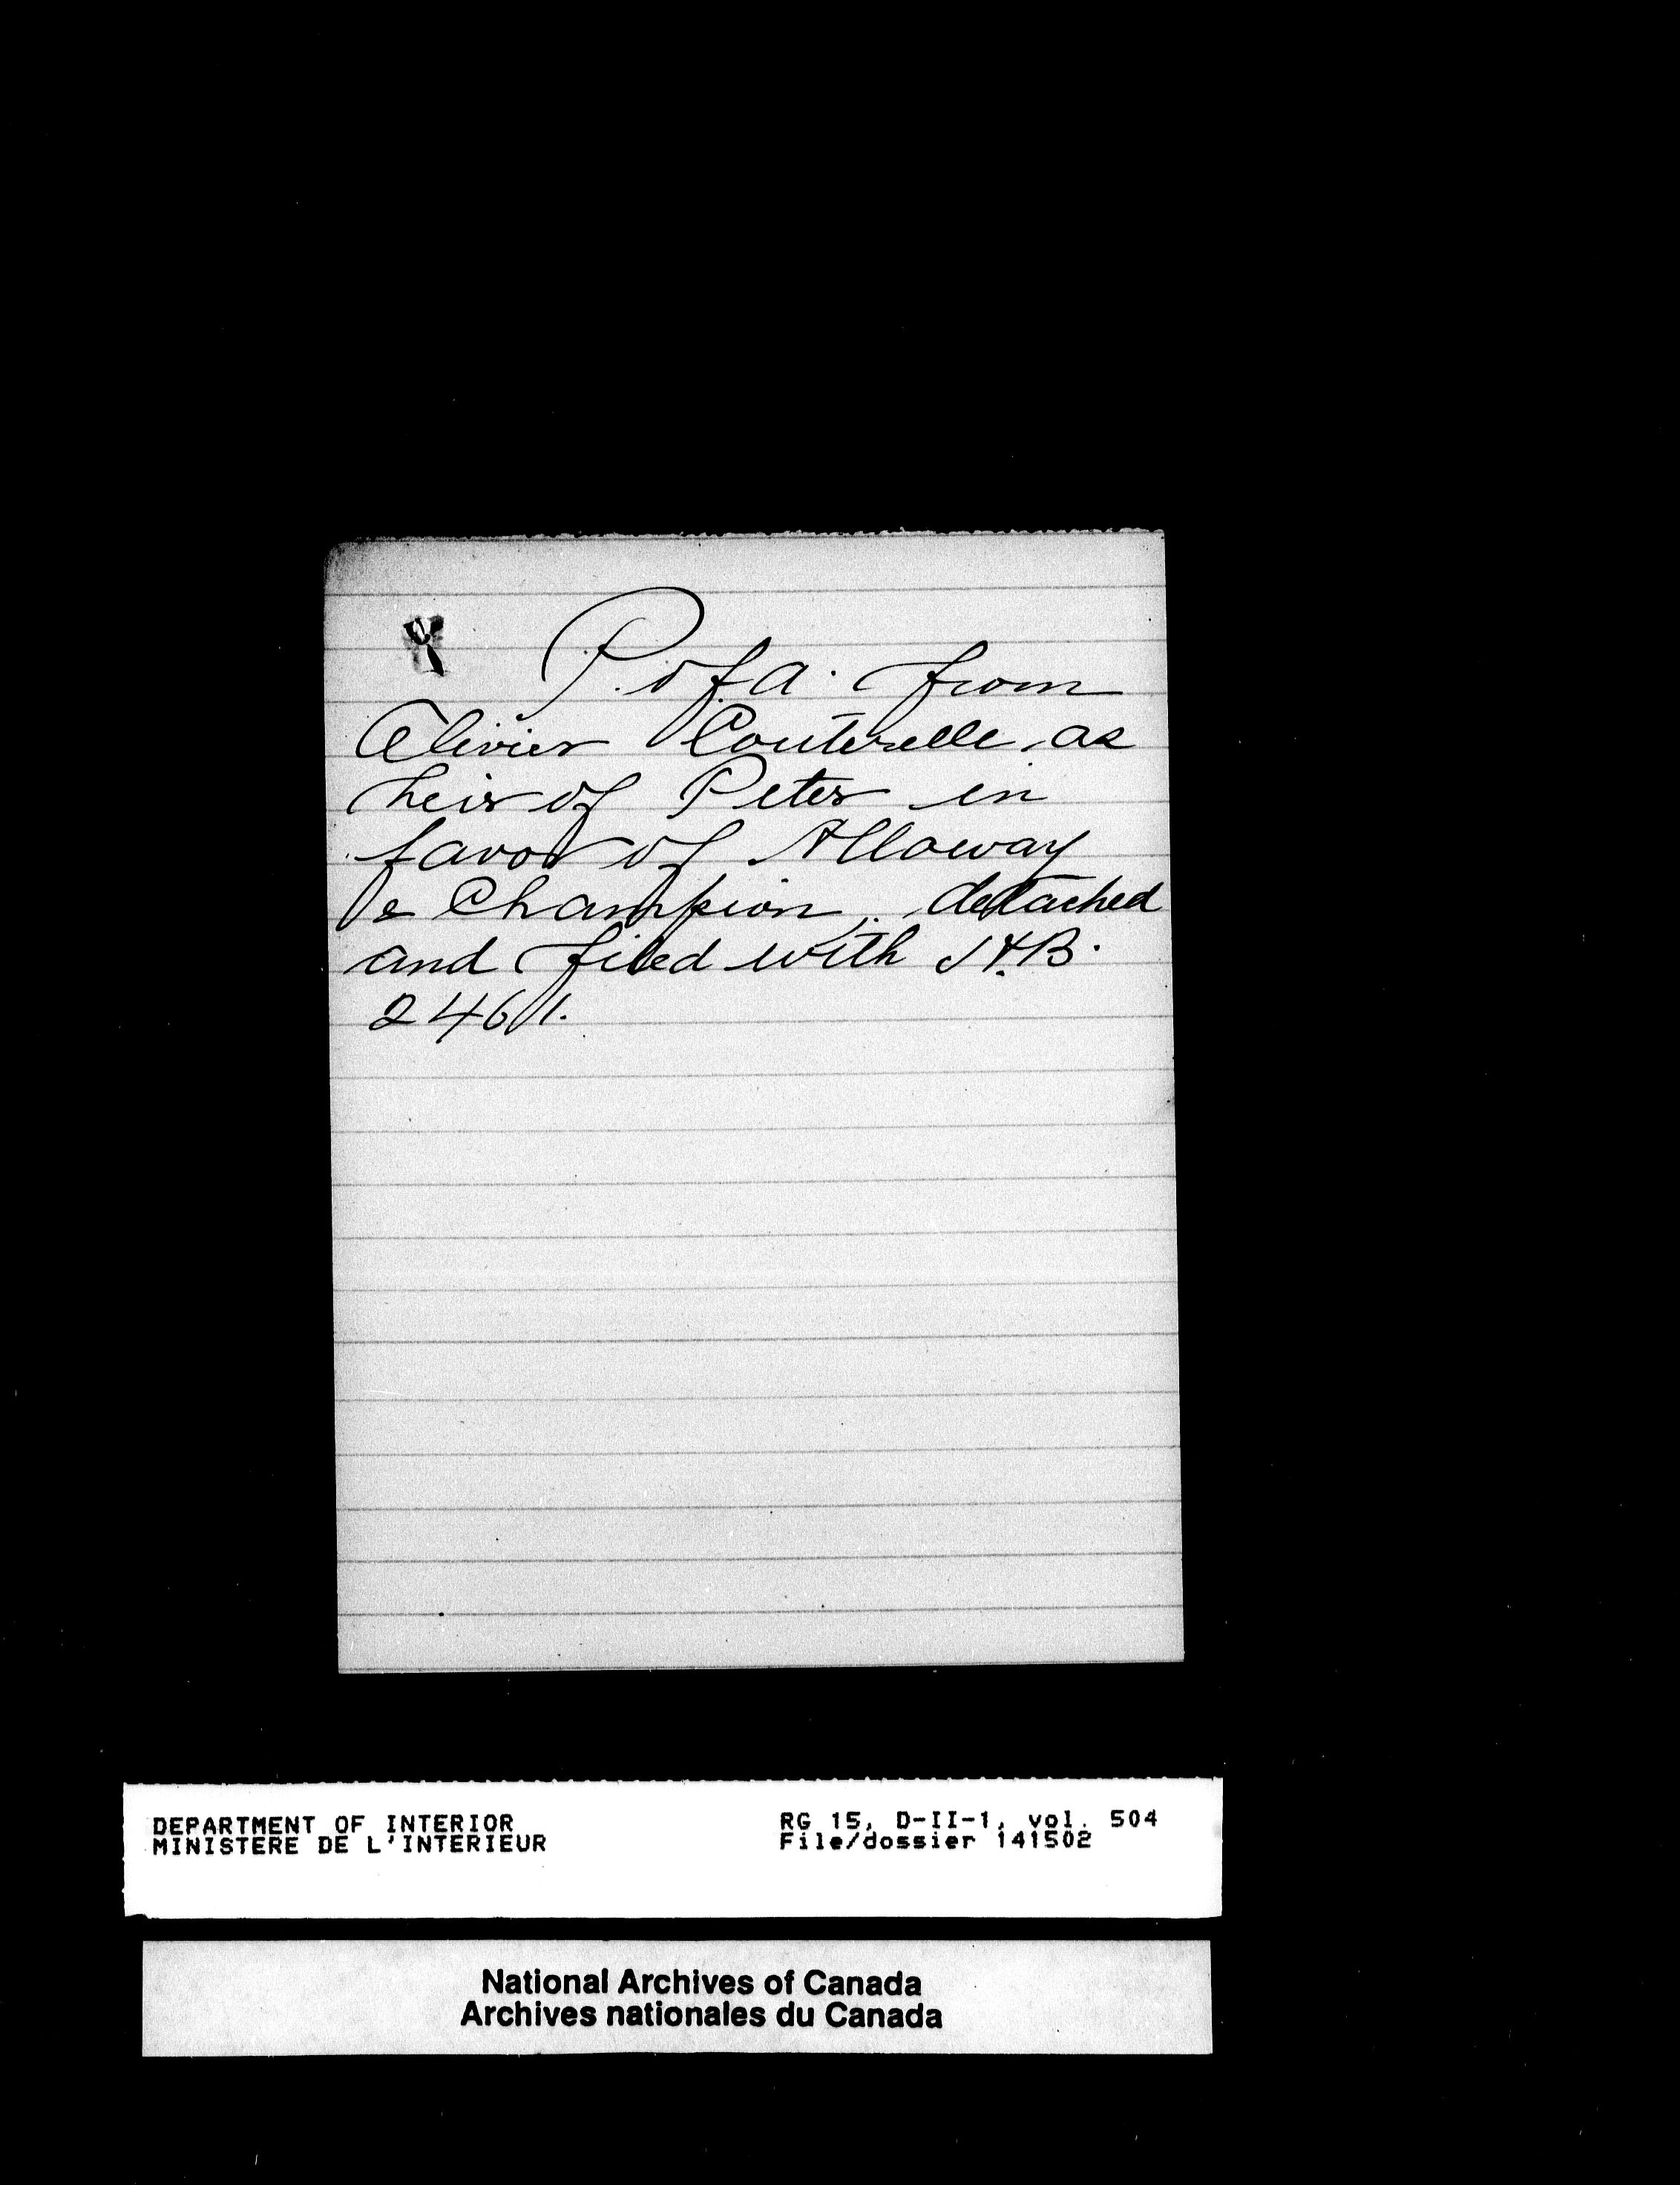 P. of A. from
Olivier Couterelle, as
heir of Peter in
favor of Alloway
& Champion, detached
and filed with H.B.
2461.
DEPARTMENT OF INTERIOR RG 15, D-II-1, vol. 504
MINISTERE DE L'INTERIEUR File/dossier 141502
National Archives of Canada
Archives nationales du Canada